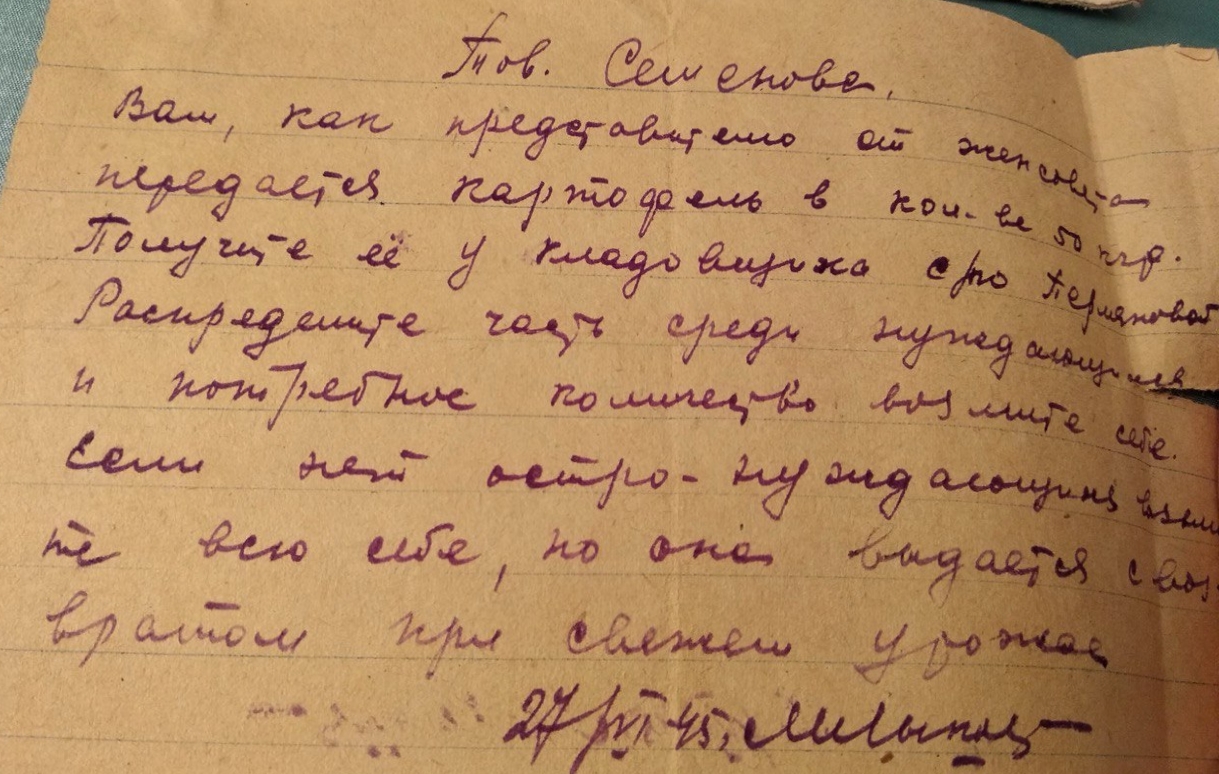 Тов. Семенова,
Вам, как представителю от женсовета
передается картофель в кол-ве 50 кгр.
Получите её у кладовщика с/по
Распределите часть среди нуждающихся
и потребное количество возмите себе.
Если нет остро-нуждающихся возми
те всю себе, но она выдается с воз-
вратом при свежем урожае
27/VI 45.